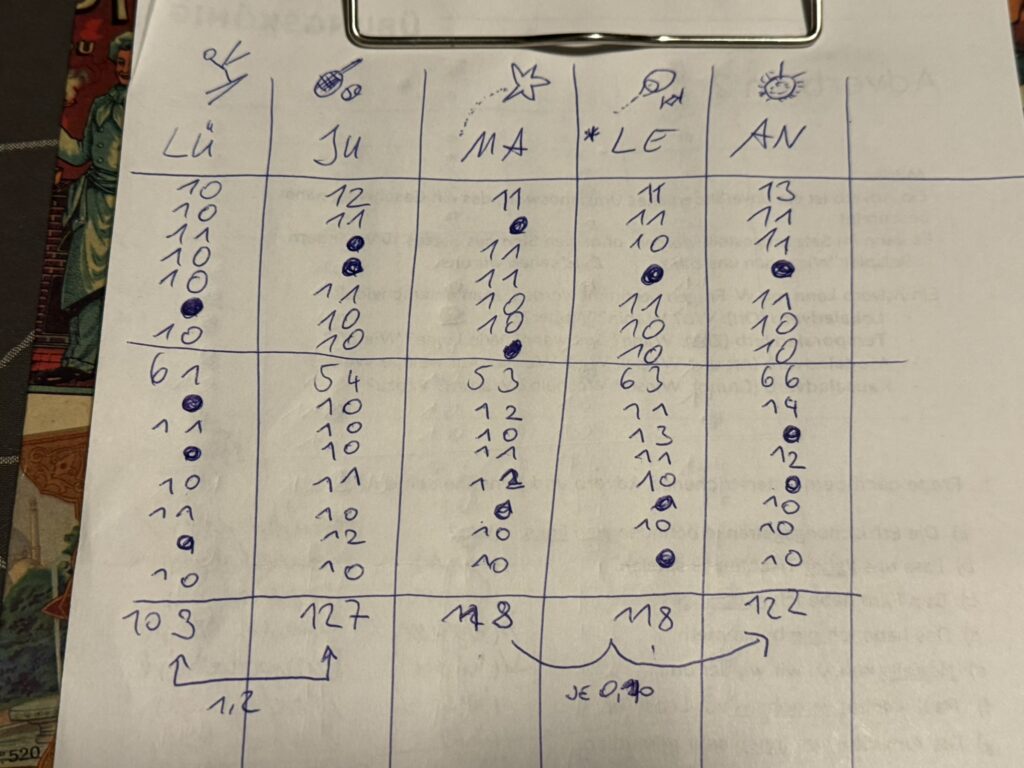 LÜ JU MA *LE AN
10 12 11 11 13
10 11 11 11
11 11 10 11
10 11
10 11 10 11 11
10 10 10 10
10 10 10 10
61 54 53 63 66
10 12 11 14
11 10 10 13
10 11 11 12
10 11 12 10
11 10 10
12 10 10 10
10 10 10 10
103 127 118 118 122
1,2 JE
520